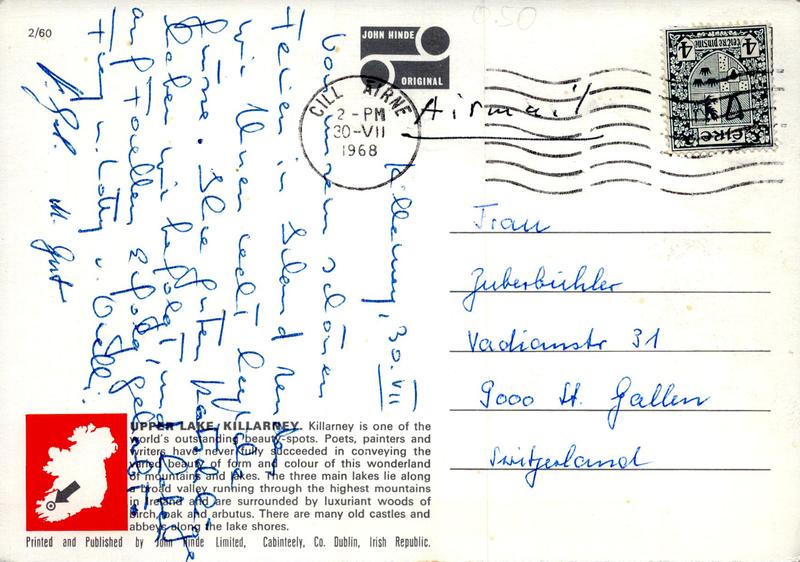 2/60
0.50
JOHN HINDE
ORIGINAL
CILL AIRNE
2 - PM
30-VII
1968
Airmail
4 4
Éire
Frau
Zuberbühler
Vadianstr 31
9000 St. Gallen
Switzerland
Killarney, 30. VII
Von unseren schönen
Ferien in Irland senden
wir Ihnen recht herzliche
Grüsse. Ihre guten Ratschläge
haben wir befolgt und
M. Gut
UPPER LAKE, KILLARNEY. Killarney is one of the
world's outstanding beauty-spots. Poets, painters and
writers have never fully succeeded in conveying the
varied beauty of form and colour of this wonderland
of mountains and lakes. The three main lakes lie along
a broad valley running through the highest mountains
in Ireland and are surrounded by luxuriant woods of
birch, oak and arbutus. There are many old castles and
abbeys along the lake shores.
Printed and Published by John Hinde Limited, Cabinteely, Co. Dublin, Irish Republic.